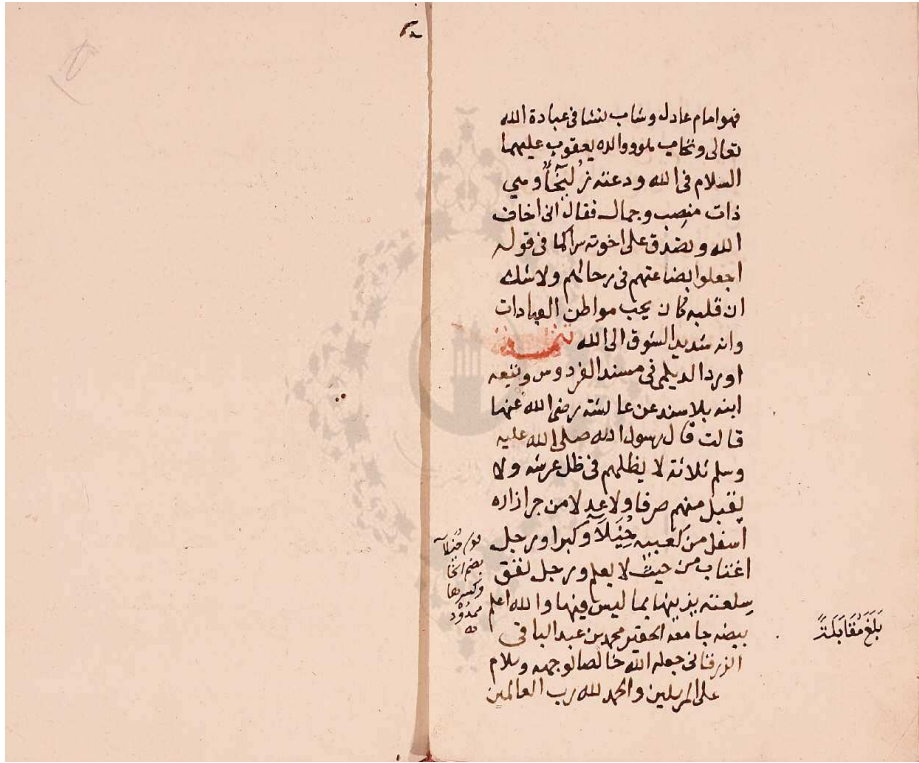 فهو امام عادل وشاب نشا فى عبادة الله
تعالى وتحابب هو ووالده يعقوب عليهما
السلام فى الله ودعته زُليخَا وهي
ذات منصِب وجمال فقال انى اخاف
الله وتصدق على اخوته سرا كما فى قوله
اجعلوا بضاعتهم فى رحالهم ولا شك
ان قلبه كان يحب مواطن العبادات
وانه شديد الشوق الى الله تتمــة
اورد الديلمى فى مسند الفردوس وتبعه
ابنه بلا سند عن عائشة رضى الله عنها
قالت قال رسول الله صلى الله عليه
وسلم ثلاثة لا يظلهم فى ظل عرشه ولا
يقبل منهم صرفا ولا عدلا من جر ازاره
اسفل من كعبيه خُيَلآ وكبرا ورجل
اغتاب من حيث لا يعلم ورجل نفق
سلعته يزينها بما ليس فيها والله اعلم
بيضه جامعه الحقير محمد بن عبد الباقى
الزرقانى جعله الله خالصا لوجهه وسلام
على المرسلين والحمد لله رب العالمين
قوله خُيلآ
بضم الخا
وكسرها
ممدُوْد
بَلَغَ مُقَابَلَةً